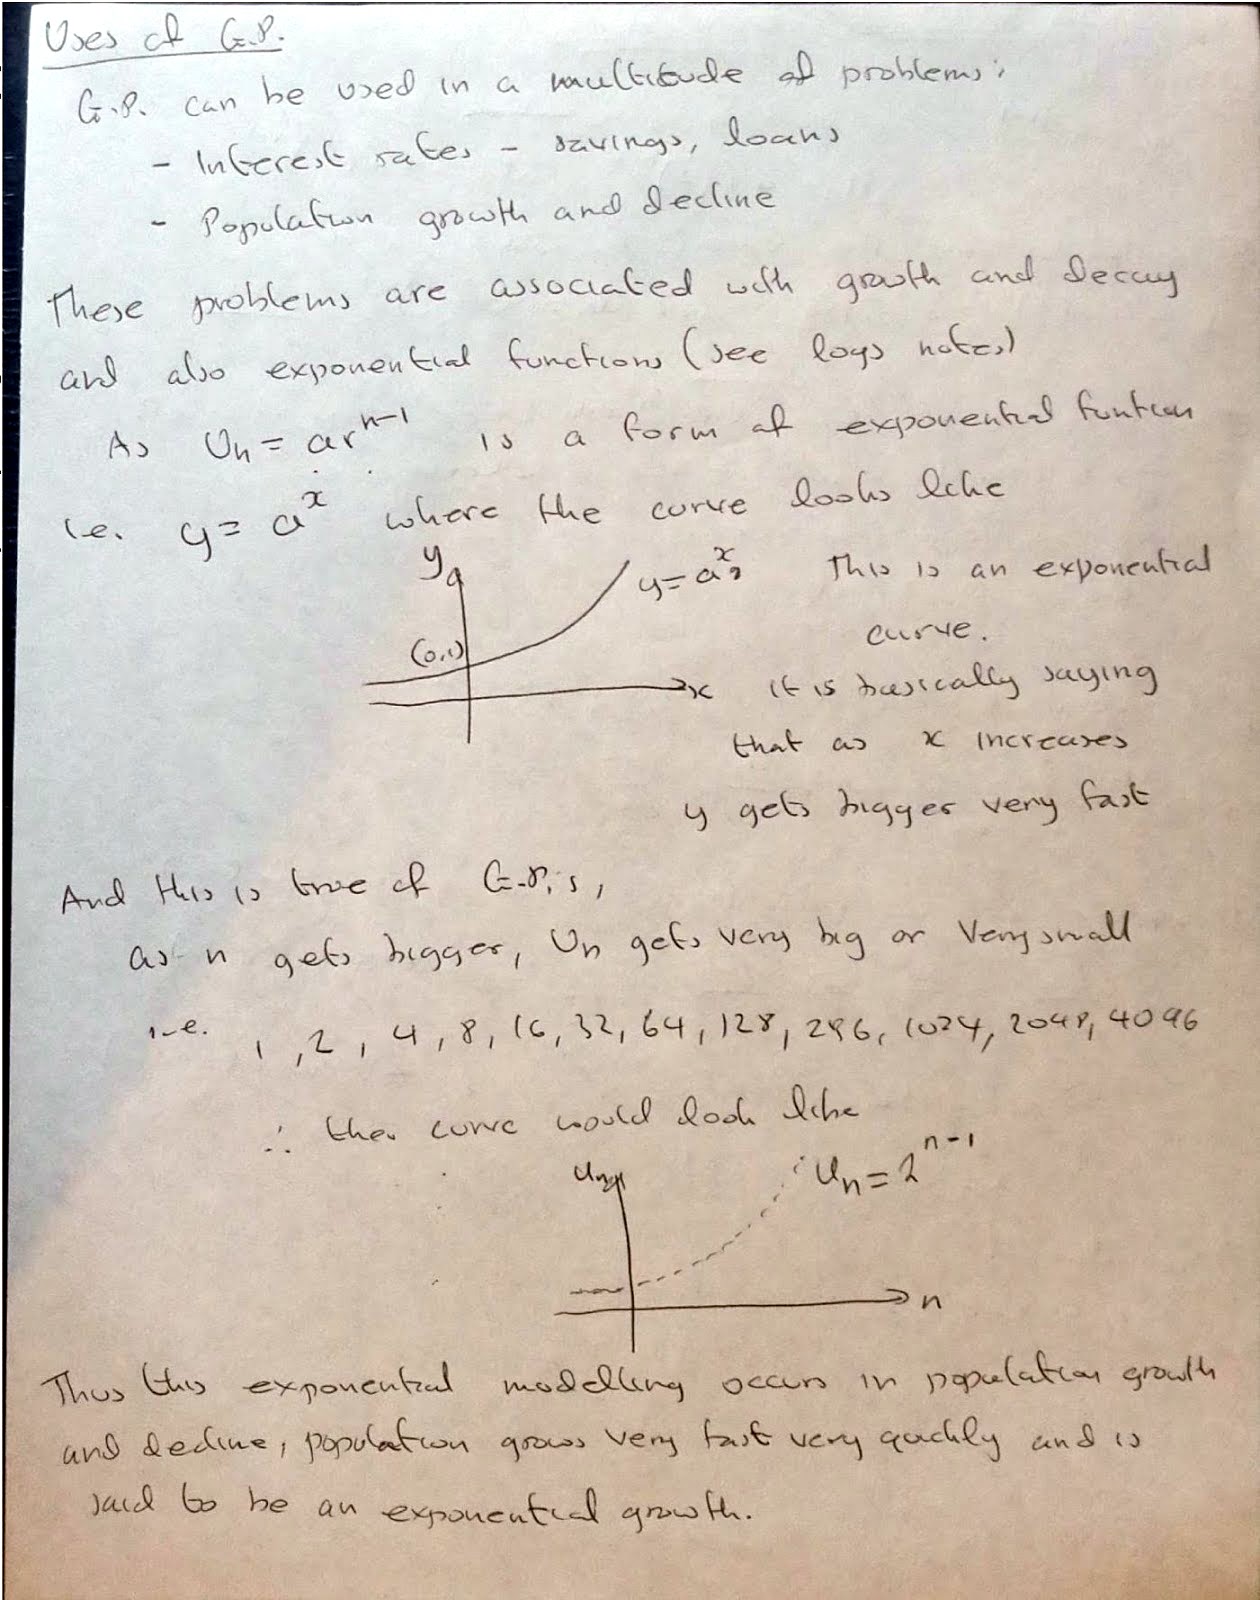 Uses of G.P.
G.P. can be used in a multitude of problems;
- Interest rates - savings, loans
- Population growth and decline
These problems are associated with growth and decay
and also exponential functions (see logs notes)
As Un = ar^n-1 is a form of exponential funtion
i.e. y = a^x where the curve looks like
y
y = a^x, This is an exponential
curve.
(0,1)
x it is basically saying
that as x increases
y gets bigger very fast
And this is true of G.P.'s,
as n gets bigger, Un gets very big or very small
i.e. 1, 2, 4, 8, 16, 32, 64, 128, 256, 1024, 2048, 4096
∴ the curve would look like
Un
Un = 2^n-1
n
Thus this exponential modelling occurs in population growth
and decline, population grows very fast very quickly and is
said to be an exponential growth.